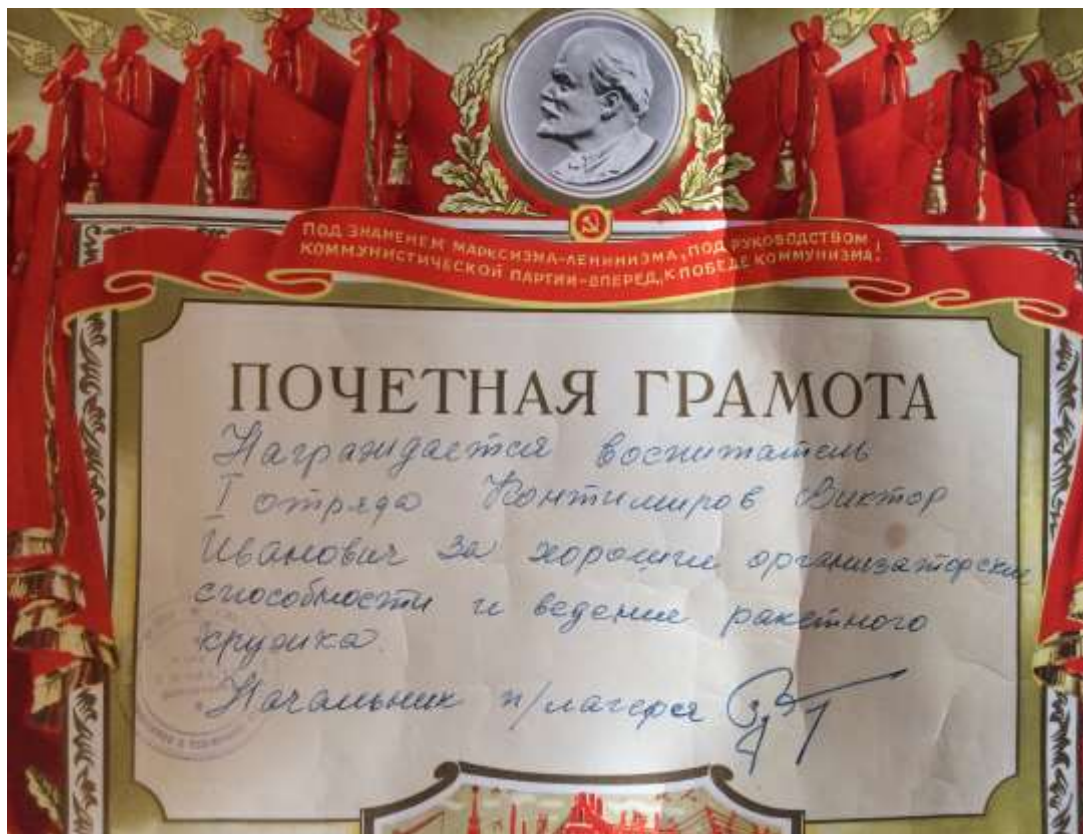 ПОД ЗНАМЕНЕМ МАРКСИЗМА-ЛЕНИНИЗМА, ПОД РУКОВОДСТВОМ
КОММУНИСТИЧЕСКОЙ ПАРТИИ-ВПЕРЕД, К ПОБЕДЕ КОММУНИЗМА!
ПОЧЕТНАЯ ГРАМОТА
Награждается воспитатель
I отряда Контимиров Виктор
Иванович за хорошие организаторские
способности и ведение ракетного
кружка.
Начальник п/лагеря